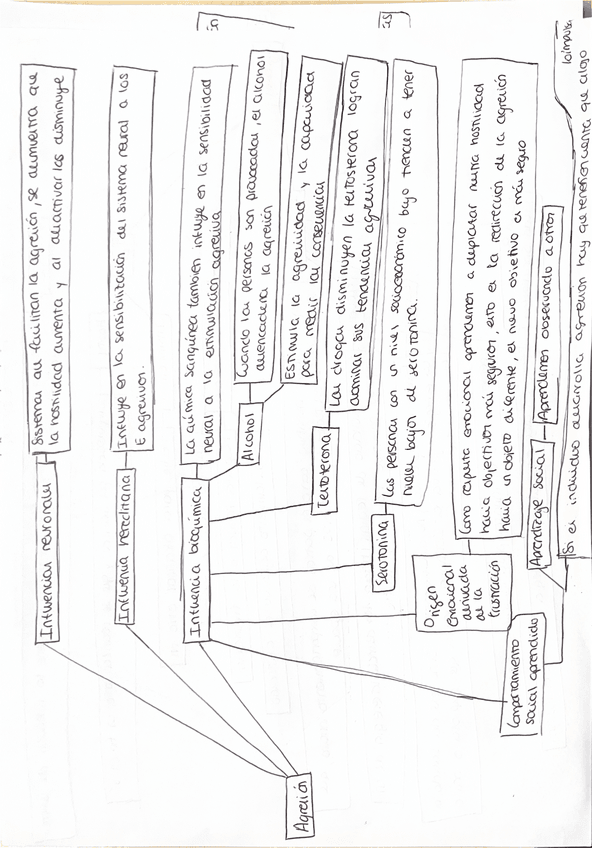 Agresión
Influencias neuronales
Sistemas que facilitan la agresión, se demuestra que
la hostilidad aumenta y al desactivar las disminuye
Influencia hereditaria
Influye en la sensibilización del sistema neural a los
E agresivos.
Influencia bioquímica
La química sanguínea también influye en la sensibilidad
neural a la estimulación agresiva
Alcohol
Cuando las personas son provocadas, el alcohol
desencadena la agresión
Estimula la agresividad y la capacidad
para medir las consecuencias
Testosterona
Las drogas disminuyen la testosterona logran
dominar sus tendencias agresivas
Serotonina
Las personas con un nivel socioeconómico bajo tienden a tener
niveles bajos de serotonina.
Origen
Emocional
derivada
de la
frustración
Como respuesta emocional aprendemos a desplazar nuestra hostilidad
hacia objetivos más seguros, esto es la redirección de la agresión
hacia un objeto diferente, el nuevo objetivo es más seguro
Comportamiento
social aprendido
Aprendizaje social
Aprendemos observando a otros
Si el individuo desarrolla agresión hay que tener en cuenta que algo
lo impulsa.